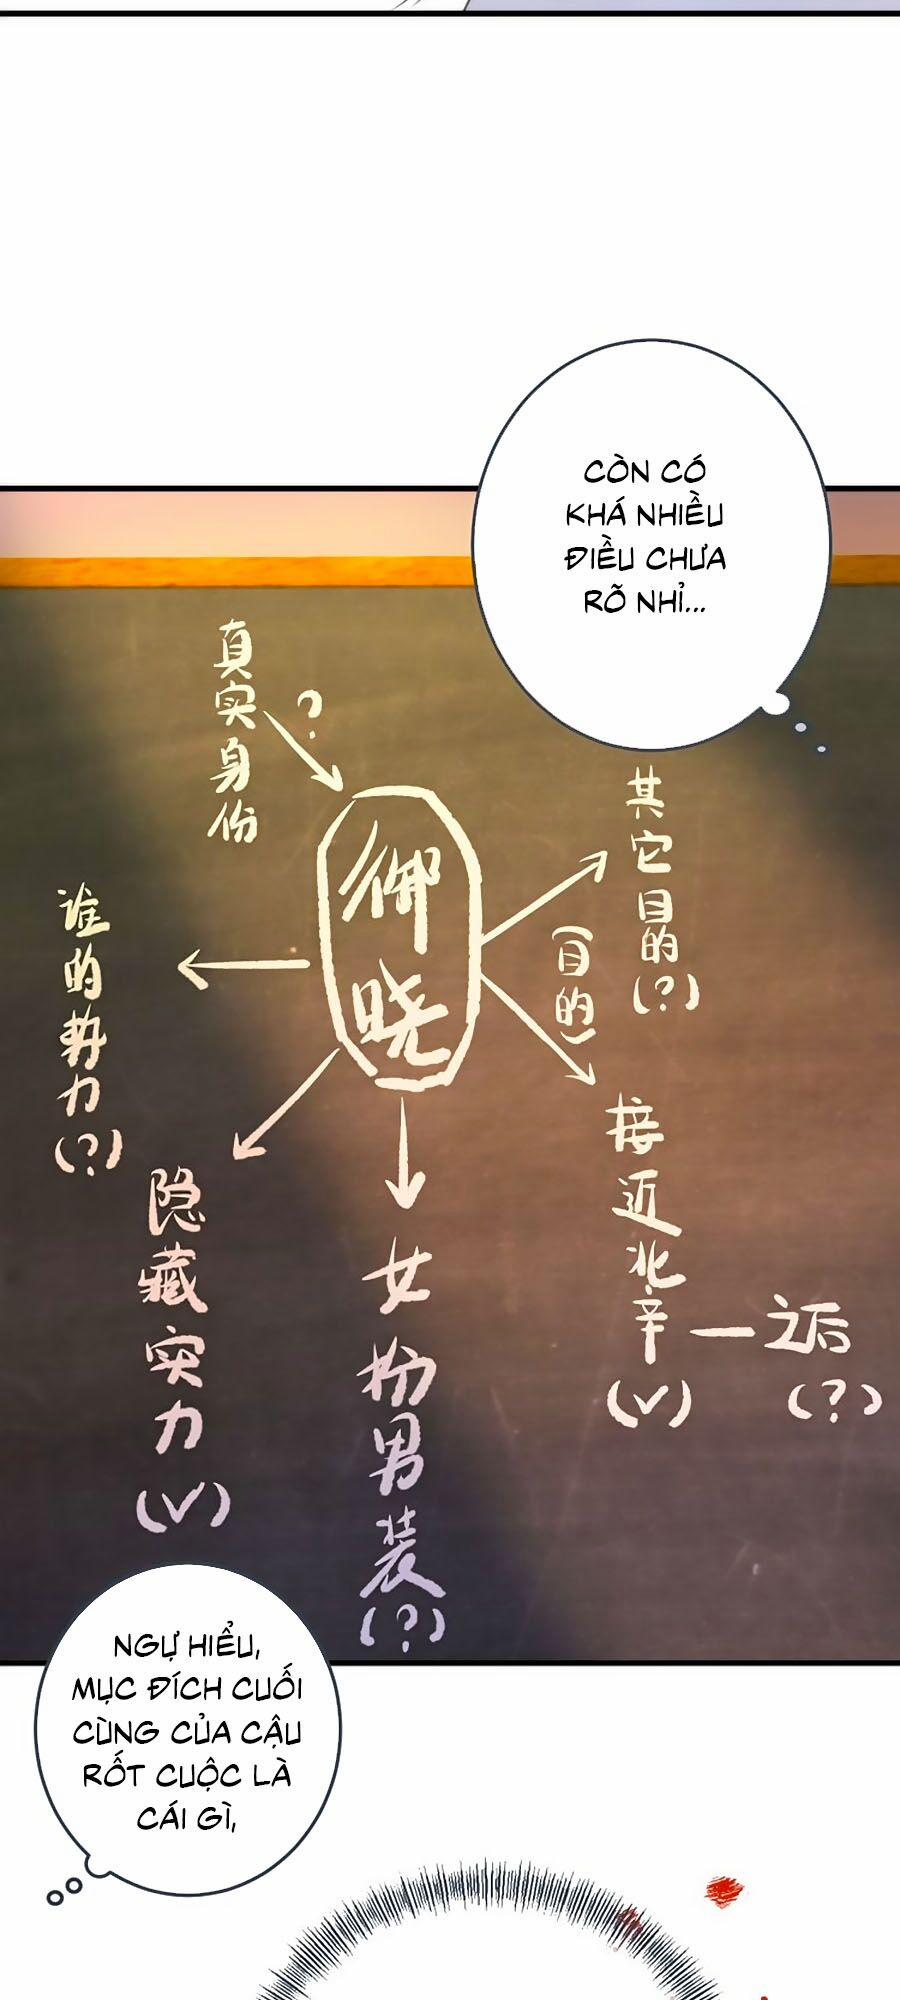 CÒN CÓ
KHÁ NHIỀU
ĐIỀU CHƯA
RÕ NHỈ...
真实身份
?
御晓
其它目的(?)
(目的)
谁的势力(?)
接近北辛(V)
一之后(?)
隐藏实力(V)
女扮男装(?)
NGỰ HIỂU,
MỤC ĐÍCH CUỐI
CÙNG CỦA CẬU
RỐT CUỘC LÀ
CÁI GÌ,